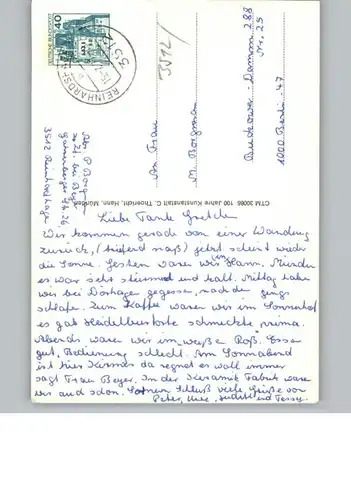 DEUTSCHE BUNDESPOST
40
REINHARDSH
3512
3512/
An Frau
M. Borgmann
Buckower-Damm 288
Nr. 25
1000 Berlin 47
CTM 30086 100 Jahre Kunstanstalt C. Thoericht, Hann. Münden
Abs. P. Borgm
zur Zt. bei Beyer
3512 Reinhardshagen
Liebe Tante Gretchen
Wir kommen gerade von einer Wanderung
zurück, (triefend naß) jetzt scheint wieder
die Sonne. Gestern waren wir in Hann. Münden
es war sehr stürmisch und kalt. Mittag haben
wir bei gegessen, nachdem gings
schlafe. Zum Kaffee waren wir im Sonnenhof
es gab Heidelbeertorte schmeckte prima.
Abends waren wir im weiße Roß. Essen
gut, Bedienung schlecht. Am Sonnabend
ist hier Kirmes da regnet es wohl immer
sagt Frau Beyer. In der Keramik Fabrik waren
wir auch schon. Schluß viele Grüße von
Peter, Judith und